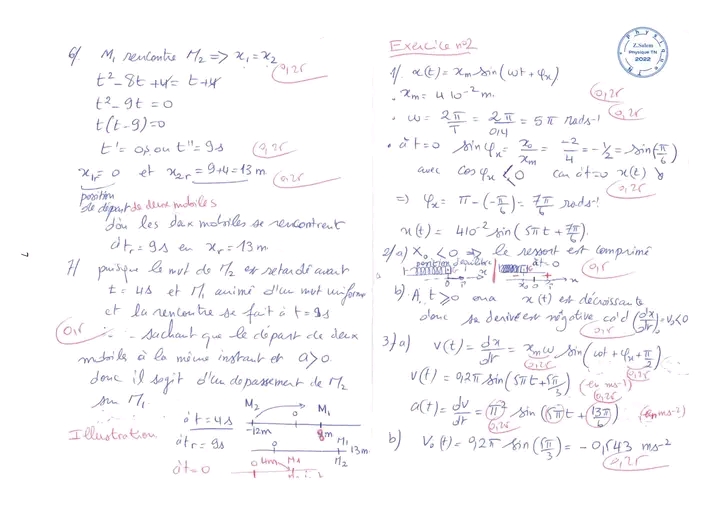 6/. M₁ rencontre M₂ => x₁ = x₂
0,25
t² - 8t + 4 = t + 4
t² - 9t = 0
t(t-9) = 0
t' = 0s ou t'' = 9s
0,25
x₁r = 0 et x₂r = 9+4 = 13m
0,25
position de départ de deux mobiles
d'où les deux mobiles se rencontrent
à tr = 9s en xr = 13m
7/ puisque le mvt de M₂ est retardé avant
t = 4s et M₁ animé d'un mvt uniforme
et la rencontre se fait à t = 9s
0,25
sachant que le départ de deux
mobile à la même instant et a>0
donc il sagit d'un depassement de M₂
sur M₁.
Illustration
à t = 4s
M₂ 0 M₁
-12m 8m
à tr = 9s
0 M₁ 13m
M₂
à t = 0
0 4m M₁
7
Exercice n°2
Z.Salem
Physique TN
2022
1/. x(t) = xm sin(ωt + φx)
0,25
. xm = 4 10⁻² m.
. ω = 2π/T = 2π/0,4 = 5π rads⁻¹
0,25
. à t=0 sin φx = x₀/xm = -2/4 = -1/2 = sin(π/6)
avec cos φx < 0 car à t=0 x(t) ↘
0,25
=> φx = π - (-π/6) = 7π/6 rads⁻¹
x(t) = 4 10⁻² sin(5πt + 7π/6).
2/a) X₀ < 0 => le ressort est comprimé
position d'équilibre à t=0
0,25
b). A t ≥ 0 on a x(t) est décroissante
donc sa derivé est négative càd (dx/dt)₀ = V₀ < 0
0,25
3/a) v(t) = dx/dt = xm ω sin(ωt + φx + π/2)
0,25 0,25
v(t) = 0,2π sin(5πt + 5π/3) (en ms⁻¹)
0,25
a(t) = dv/dt = π² sin(5πt + 13π/6) (en ms⁻²)
0,25 0,25
b) V₀(t) = 0,2π sin(5π/3) = -0,543 ms⁻²
0,25